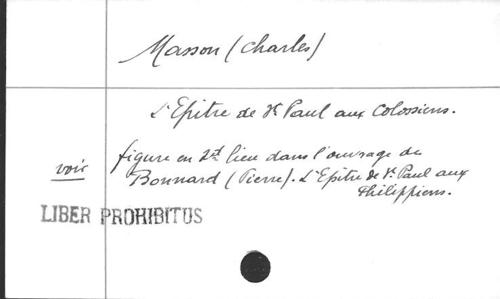 Masson (Charles)
L'Epitre de St Paul aux Colossiens.
voir figure en 2d lieu dans l'ouvrage de
Bonnard (Pierre). L'Epitre de St Paul aux
Philippiens.
LIBER PROHIBITUS